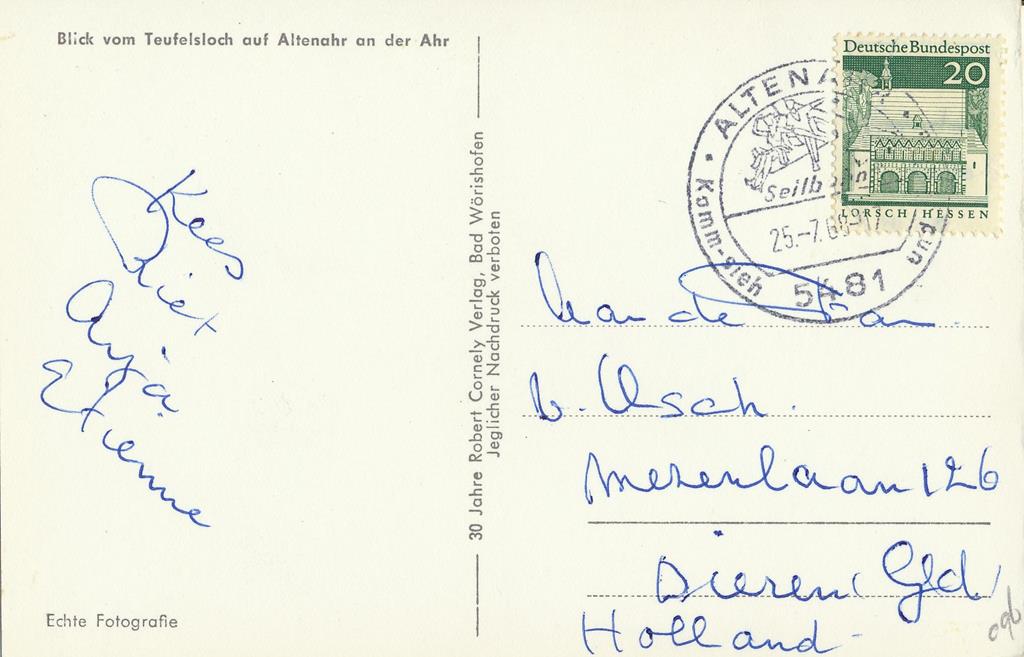 Blick vom Teufelsloch auf Altenahr an der Ahr
Kees
Riet
Anja
Etienne
Echte Fotografie
30 Jahre Robert Cornely Verlag, Bad Wörishofen
Jeglicher Nachdruck verboten
Deutsche Bundespost
20
LORSCH/HESSEN
ALTENA
Seilbahn
25.-7.68-17
Komm-sieh und
5481
de Fam.
v.
Mezenlaan 126
Dieren (Gld)
Holland